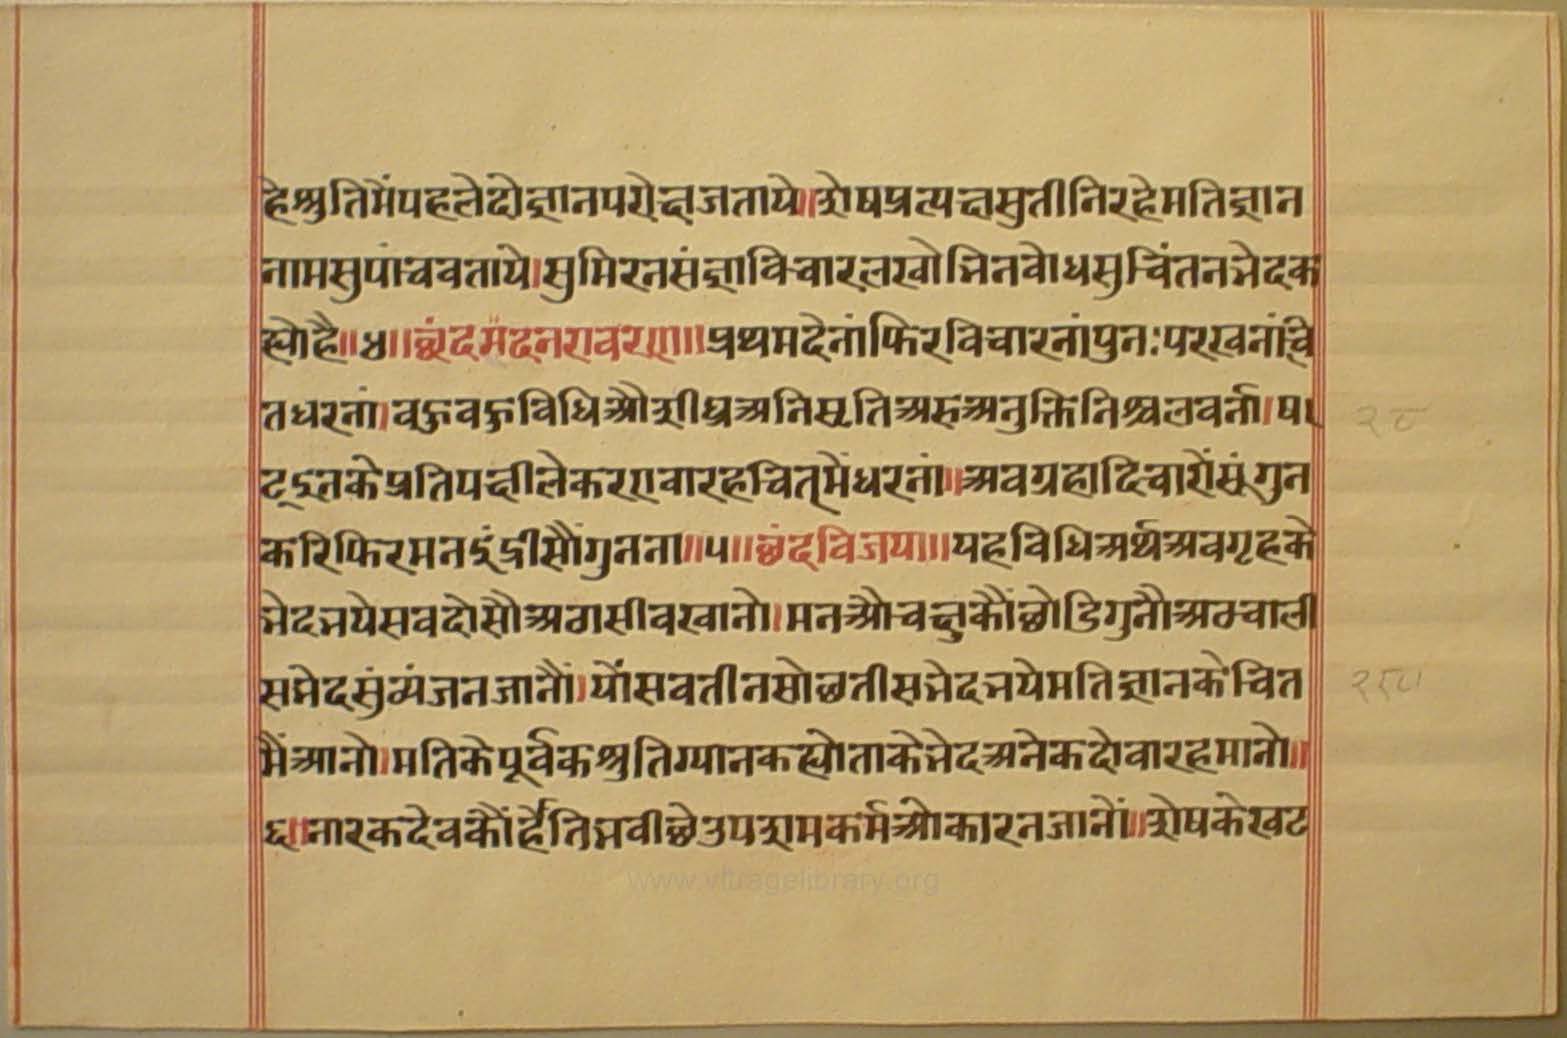 हेश्रुतिमैंपहलेदोज्ञानपरोक्षजताये॥शेषप्रत्यक्षसुतीनिरहेमतिज्ञान
नामसुपांचवताये।सुमिरनसंज्ञाविचारलखोभिनवोधसुचिंतनभेदक
ह्योहै॥४॥छंदमंदनरावरण॥प्रथमदेनांफिरविचारनांपुनःपरखनांचि
तधरनां।वक्रवक्रविधिऔशीघ्रअतिसृतिअरुअनुक्तिनिश्चलवर्ना।षा
केप्रतिपक्षीलेकरएवारहचित्मेंधरनां॥अवग्रहादिचारोंसूंगुन
करिफिरमनइंद्रीसौंगुनना॥५॥छंदविजया॥यहविधिअर्थअवगृहके
भेदभयेसवदोसौअठासीवखानो।मनऔचक्षुकौंछोडिगुनौअठचाली
सभेदसुंव्यंजनजानौं।योंसवतीनसोछतीसभेदभयेमतिज्ञानकेचित
मैंआनो।मतिकेपूर्वकश्रुतिग्यानकह्योताकेभेदअनेकदोवारहमानो॥
६॥नारकदेवकौंर्हैतिभवीछेउपशमकर्मओकारनजानों॥शेषकेखट
२८
२८८
www.vitragelibrary.org